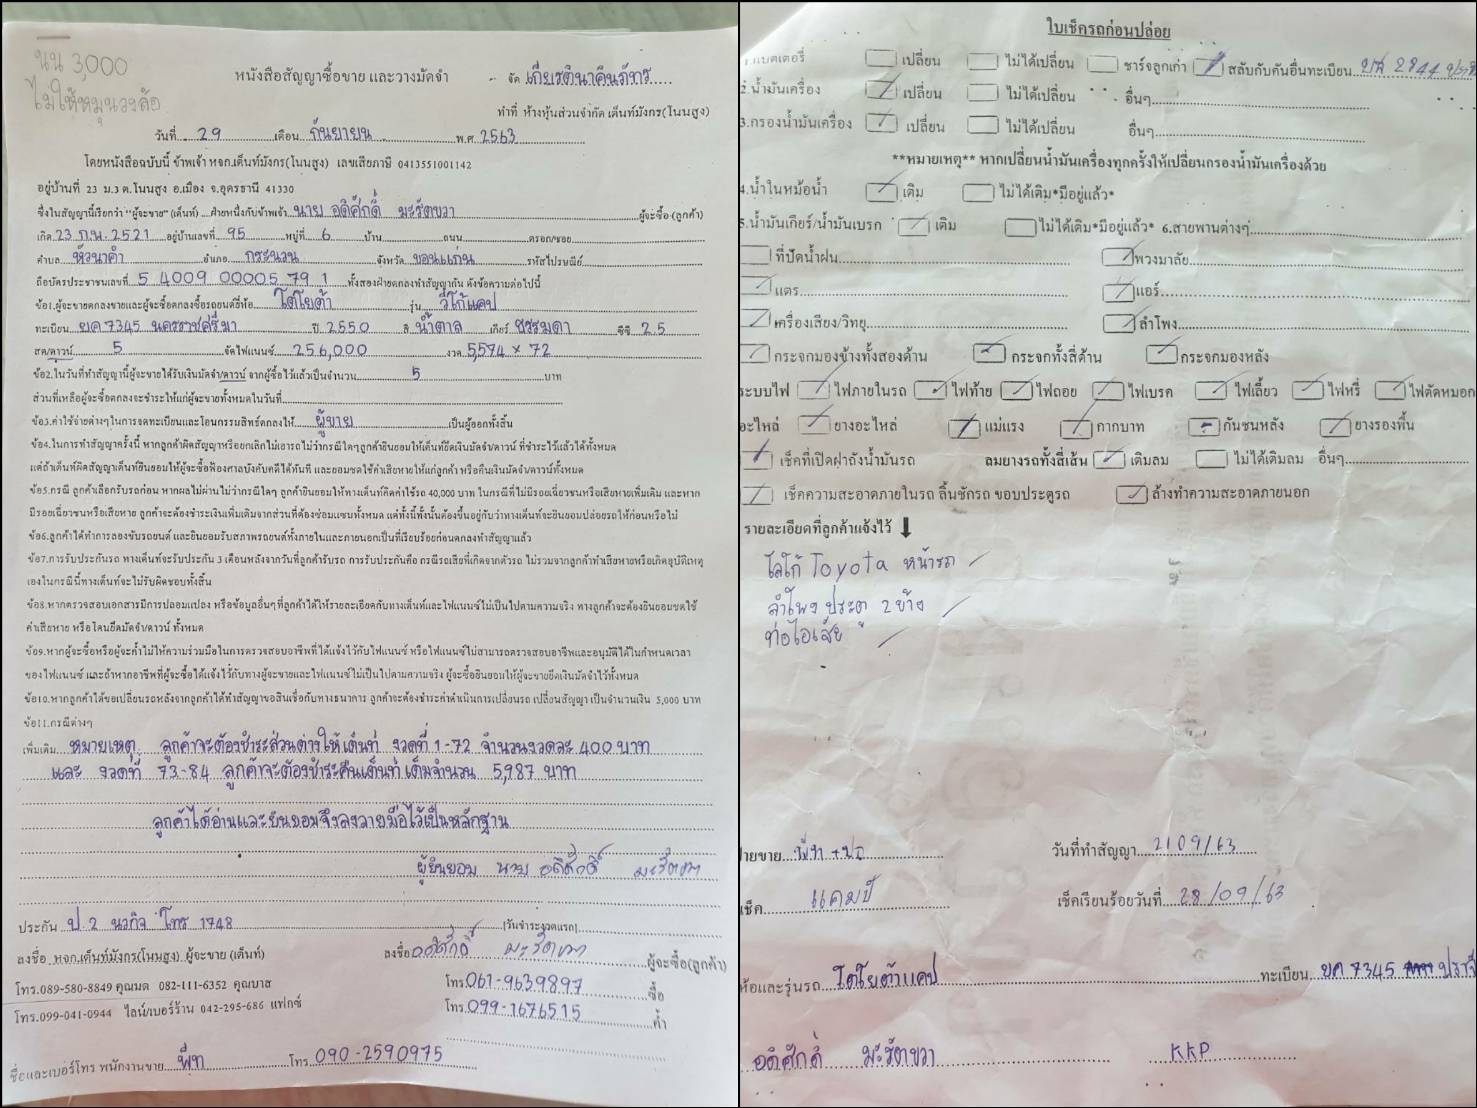 นน 3,000
ไม่ให้หมุนวงล้อ
หนังสือสัญญาซื้อขาย และวางมัดจำ - จัด เกียรตินาคินภัทร
ทำที่ ห้างหุ้นส่วนจำกัด เต็นท์มังกร(โนนสูง)
วันที่ 29 เดือน กันยายน พ.ศ 2563
โดยหนังสือฉบับนี้ ข้าพเจ้า หจก.เต็นท์มังกร(โนนสูง) เลขเสียภาษี 0413551001142
อยู่บ้านที่ 23 ม.3 ต.โนนสูง อ.เมือง จ.อุดรธานี 41330
ซึ่งในสัญญานี้เรียกว่า "ผู้จะขาย" (เต็นท์) ฝ่ายหนึ่งกับข้าพเจ้า นาย อดิศักดิ์ มะรัตขวา ผู้จะซื้อ (ลูกค้า)
เกิด 23 ก.พ. 2521 อยู่บ้านเลขที่ 95 หมู่ที่ 6 บ้าน ถนน ตรอก/ซอย
ตำบล หัวนาคำ อำเภอ กระนวน จังหวัด ขอนแก่น รหัสไปรษณีย์
ถือบัตรประชาชนเลขที่ 5 4009 00005 79 1 ทั้งสองฝ่ายตกลงทำสัญญากัน ดังข้อความต่อไปนี้
ข้อ1.ผู้จะขายตกลงขายและผู้จะซื้อตกลงซื้อรถยนต์ยี่ห้อ โตโยต้า รุ่น วีโก้แคป
ทะเบียน ยค 7345 นครราชศรีมา ปี 2550 สี น้ำตาล เกียร์ ธรรมดา ซีซี 2.5
สด/ดาวน์ 5 จัดไฟแนนซ์ 256,000 งวด 5,574 × 72
ข้อ2.ในวันที่ทำสัญญานี้ผู้จะขายได้รับเงินมัดจำ/ดาวน์ จากผู้ซื้อไว้แล้วเป็นจำนวน 5 บาท
ส่วนที่เหลือผู้จะซื้อตกลงจะชำระให้แก่ผู้จะขายทั้งหมดในวันที่
ข้อ3.ค่าใช้จ่ายต่างๆในการจดทะเบียนและโอนกรรมสิทธิ์ตกลงให้ ผู้ขาย เป็นผู้ออกทั้งสิ้น
ข้อ4.ในการทำสัญญาครั้งนี้ หากลูกค้าผิดสัญญาหรือยกเลิกไม่เอารถ ไม่ว่ากรณีใดๆลูกค้ายินยอมให้เต็นท์ยึดเงินมัดจำ/ดาวน์ ที่ชำระไว้แล้วได้ทั้งหมด
แต่ถ้าเต็นท์ผิดสัญญาเต็นท์ยินยอมให้ผู้จะซื้อฟ้องศาลบังคับคดีได้ทันที และยอมชดใช้ค่าเสียหายให้แก่ลูกค้า หรือคืนเงินมัดจำ/ดาวน์ทั้งหมด
ข้อ5.กรณี ลูกค้าเลือกรับรถก่อน หากผลไม่ผ่านไม่ว่ากรณีใดๆ ลูกค้ายินยอมให้ทางเต็นท์คิดค่าใช้รถ 40,000 บาท ในกรณีที่ไม่มีรอยเฉี่ยวชนหรือเสียหายเพิ่มเติม และหาก
มีรอยเฉี่ยวชนหรือเสียหาย ลูกค้าจะต้องชำระเงินเพิ่มเติมจากส่วนที่ต้องซ่อมแซมทั้งหมด แต่ทั้งนี้ทั้งนั้นต้องขึ้นอยู่กับว่าทางเต็นท์จะยินยอมปล่อยรถให้ก่อนหรือไม่
ข้อ6.ลูกค้าได้ทำการลองขับรถยนต์ และยินยอมรับสภาพรถยนต์ทั้งภายในและภายนอกเป็นที่เรียบร้อยก่อนตกลงทำสัญญาแล้ว
ข้อ7.การรับประกันรถ ทางเต็นท์จะรับประกัน 3 เดือนหลังจากวันที่ลูกค้ารับรถ การรับประกันคือ กรณีรถเสียที่เกิดจากตัวรถ ไม่รวมจากลูกค้าทำเสียหายหรือเกิดอุบัติเหตุ
เองในกรณีนี้ทางเต็นท์จะไม่รับผิดชอบทั้งสิ้น
ข้อ8.หากตรวจสอบเอกสารมีการปลอมแปลง หรือข้อมูลอื่นๆที่ลูกค้าได้ให้รายละเอียดกับทางเต็นท์และไฟแนนซ์ไม่เป็นไปตามความจริง ทางลูกค้าจะต้องยินยอมชดใช้
ค่าเสียหาย หรือโดนยึดมัดจำ/ดาวน์ ทั้งหมด
ข้อ9.หากผู้จะซื้อหรือผู้จะค้ำไม่ให้ความร่วมมือในการตรวจสอบอาชีพที่ได้แจ้งไว้กับไฟแนนซ์ หรือไฟแนนซ์ไม่สามารถตรวจสอบอาชีพและอนุมัติได้ในกำหนดเวลา
ของไฟแนนซ์ และถ้าหากอาชีพที่ผู้จะซื้อได้แจ้งไว้กับทางผู้จะขายและไฟแนนซ์ไม่เป็นไปตามความจริง ผู้จะซื้อยินยอมให้ผู้จะขายยึดเงินมัดจำไว้ทั้งหมด
ข้อ10.หากลูกค้าได้ขอเปลี่ยนรถหลังจากลูกค้าได้ทำสัญญาขอสินเชื่อกับทางธนาคาร ลูกค้าจะต้องชำระค่าดำเนินการเปลี่ยนรถ เปลี่ยนสัญญา เป็นจำนวนเงิน 5,000 บาท
ข้อ11.กรณีต่างๆ
เพิ่มเติม หมายเหตุ ลูกค้าจะต้องชำระส่วนต่างให้เต็นท์ งวดที่ 1-72 จำนวนงวดละ 400 บาท
และ งวดที่ 73-84 ลูกค้าจะต้องชำระคืนเต็นท์ เต็มจำนวน 5,987 บาท
ลูกค้าได้อ่านและยินยอมจึงลงลายมือไว้เป็นหลักฐาน
ผู้ยินยอม นาย อดิศักดิ์ มะรัตขวา
ประกัน ป.2 นวกิจ โทร 1748 (วันชำระงวดแรก)
ลงชื่อ หจก.เต็นท์มังกร(โนนสูง) ผู้จะขาย (เต็นท์) ลงชื่อ อดิศักดิ์ มะรัตขวา ผู้จะซื้อ(ลูกค้า)
โทร.089-580-8849 คุณมด 082-111-6352 คุณบาส โทร 061-9639897 ซื้อ
โทร.099-041-0944 ไลน์/เบอร์ร้าน 042-295-686 แฟกซ์ โทร. 099-1676515 ค้ำ
ชื่อและเบอร์โทร พนักงานขาย พีท โทร. 090-2590975
ใบเช็ครถก่อนปล่อย
1.แบตเตอรี่ เปลี่ยน ไม่ได้เปลี่ยน ชาร์จลูกเก่า สลับกับคันอื่นทะเบียน 2844
2.น้ำมันเครื่อง เปลี่ยน ไม่ได้เปลี่ยน อื่นๆ
3.กรองน้ำมันเครื่อง เปลี่ยน ไม่ได้เปลี่ยน อื่นๆ
**หมายเหตุ** หากเปลี่ยนน้ำมันเครื่องทุกครั้งให้เปลี่ยนกรองน้ำมันเครื่องด้วย
4.น้ำในหม้อน้ำ เติม ไม่ได้เติม*มีอยู่แล้ว*
5.น้ำมันเกียร์/น้ำมันเบรก เติม ไม่ได้เติม*มีอยู่แล้ว* 6.สายพานต่างๆ
ที่ปัดน้ำฝน พวงมาลัย
แตร แอร์
เครื่องเสียง/วิทยุ ลำโพง
กระจกมองข้างทั้งสองด้าน กระจกทั้งสี่ด้าน กระจกมองหลัง
ระบบไฟ ไฟภายในรถ ไฟท้าย ไฟถอย ไฟเบรค ไฟเลี้ยว ไฟหรี่ ไฟตัดหมอก
อะไหล่ ยางอะไหล่ แม่แรง กากบาท กันชนหลัง ยางรองพื้น
เช็คที่เปิดฝาถังน้ำมันรถ ลมยางรถทั้งสี่เส้น เติมลม ไม่ได้เติมลม อื่นๆ
เช็คความสะอาดภายในรถ ลิ้นชักรถ ขอบประตูรถ ล้างทำความสะอาดภายนอก
รายละเอียดที่ลูกค้าแจ้งไว้
โลโก้ Toyota หน้ารถ
ลำโพง ประตู 2 ข้าง
ท่อไอเสีย
ฝ่ายขาย พีท วันที่ทำสัญญา 21/09/63
เช็ค แคมป์ เช็คเรียบร้อยวันที่ 28/09/63
ยี่ห้อและรุ่นรถ โตโยต้าแคป ทะเบียน ยค 7345
อดิศักดิ์ มะรัตขวา KKP